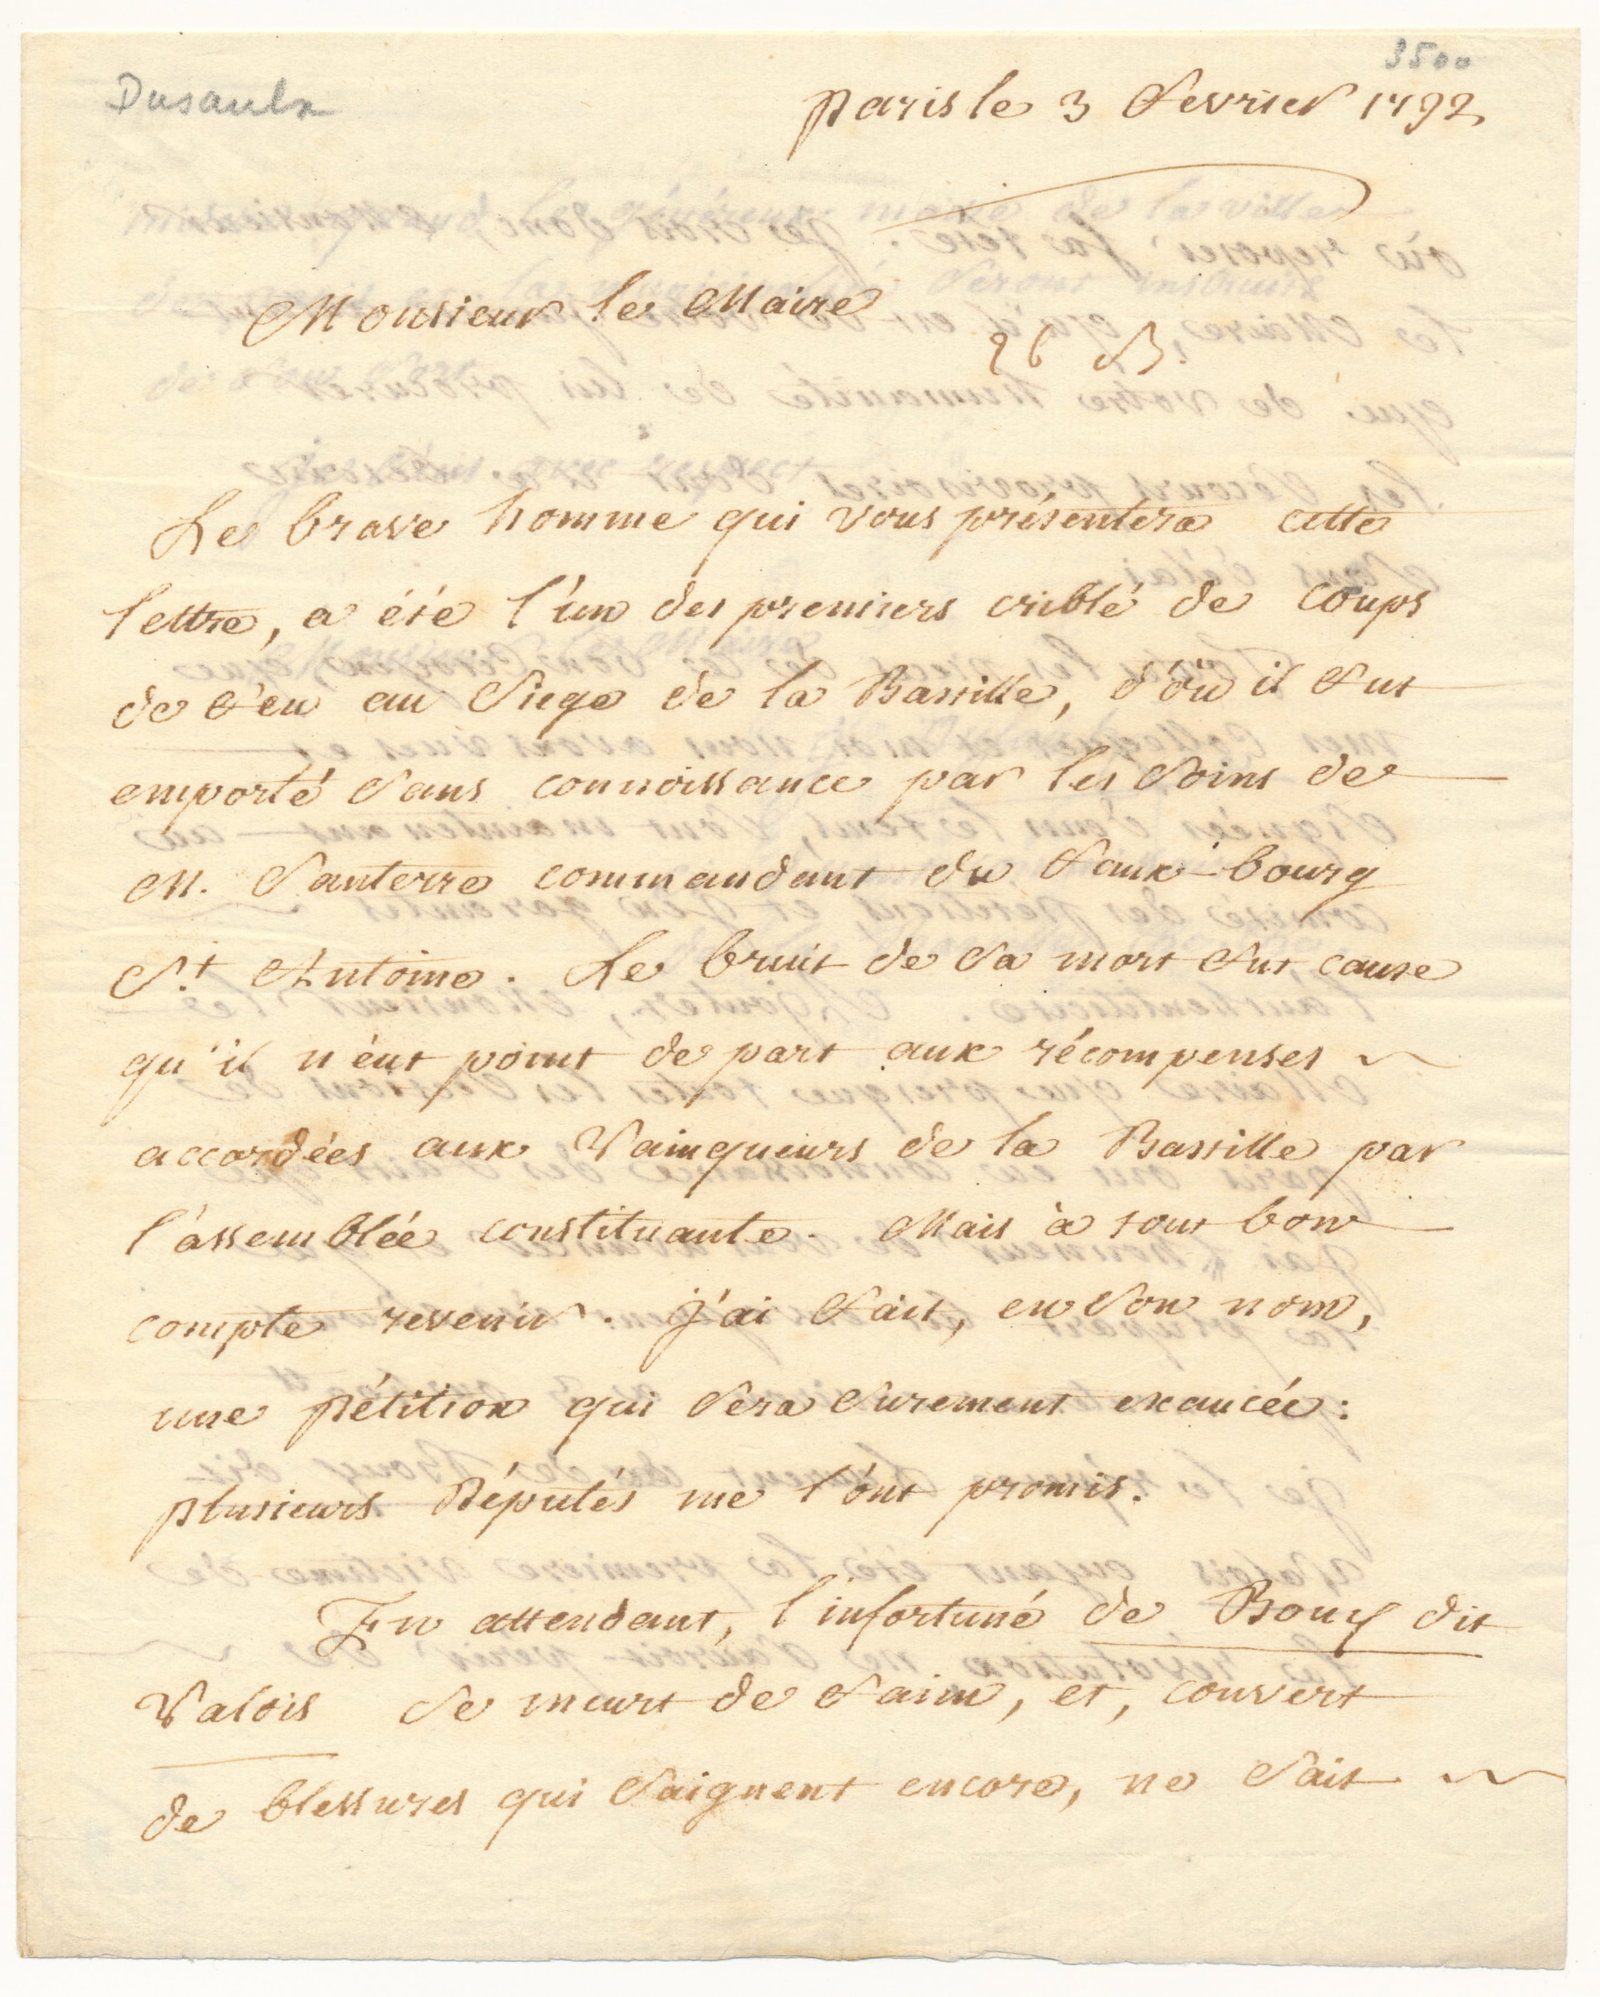 3500
Dusaulx
paris le 3 fevrier 1792
Monsieur le Maire
26 B.
Le brave homme qui vous présentera cette
lettre, a été l'un des premiers criblé de coups
de feu au siege de la Bastille, d'où il fut
emporté sans connoissance par les soins de
M. Santerre commandant du faux-bourg
St Antoine. Le bruit de sa mort fut cause
qu'il n'eut point de part aux récompenses
accordées aux Vainqueurs de la Bastille par
l'assemblée constituante. Mais à tout bon
compte revenir. J'ai fait, en son nom,
une pétition qui sera surement exaucée:
plusieurs Députés me l'ont promis.
En attendant, l'infortuné de Bouy dit
Valois se meurt de faim, et, couvert
de blessures qui saignent encore, ne sait